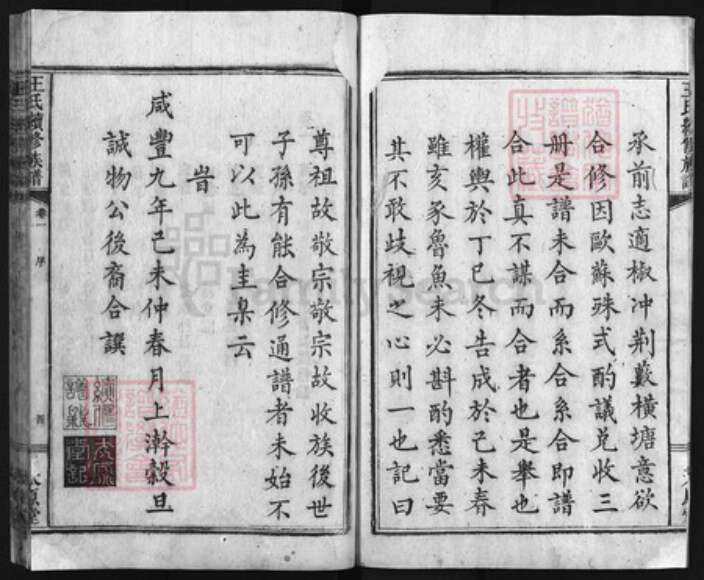 承前志適椒冲荆藪橫塘意欲
合修因歐蘇殊式酌議兌收三
册是譜未合而系合系合即譜
合此真不謀而合者也是舉也
權輿於丁巳冬告成於己未春
雖亥豕魯魚未必斟酌悉當要
其不敢歧視之心則一也記曰
尊祖故敬宗敬宗故收族後世
子孫有能合修通譜者未始不
可以此為圭臬云
旹
咸豐九年己未仲春月上澣穀旦
誠物公後裔合譔
王氏續修族譜
卷一 序
王氏續修族譜
FamilySearch